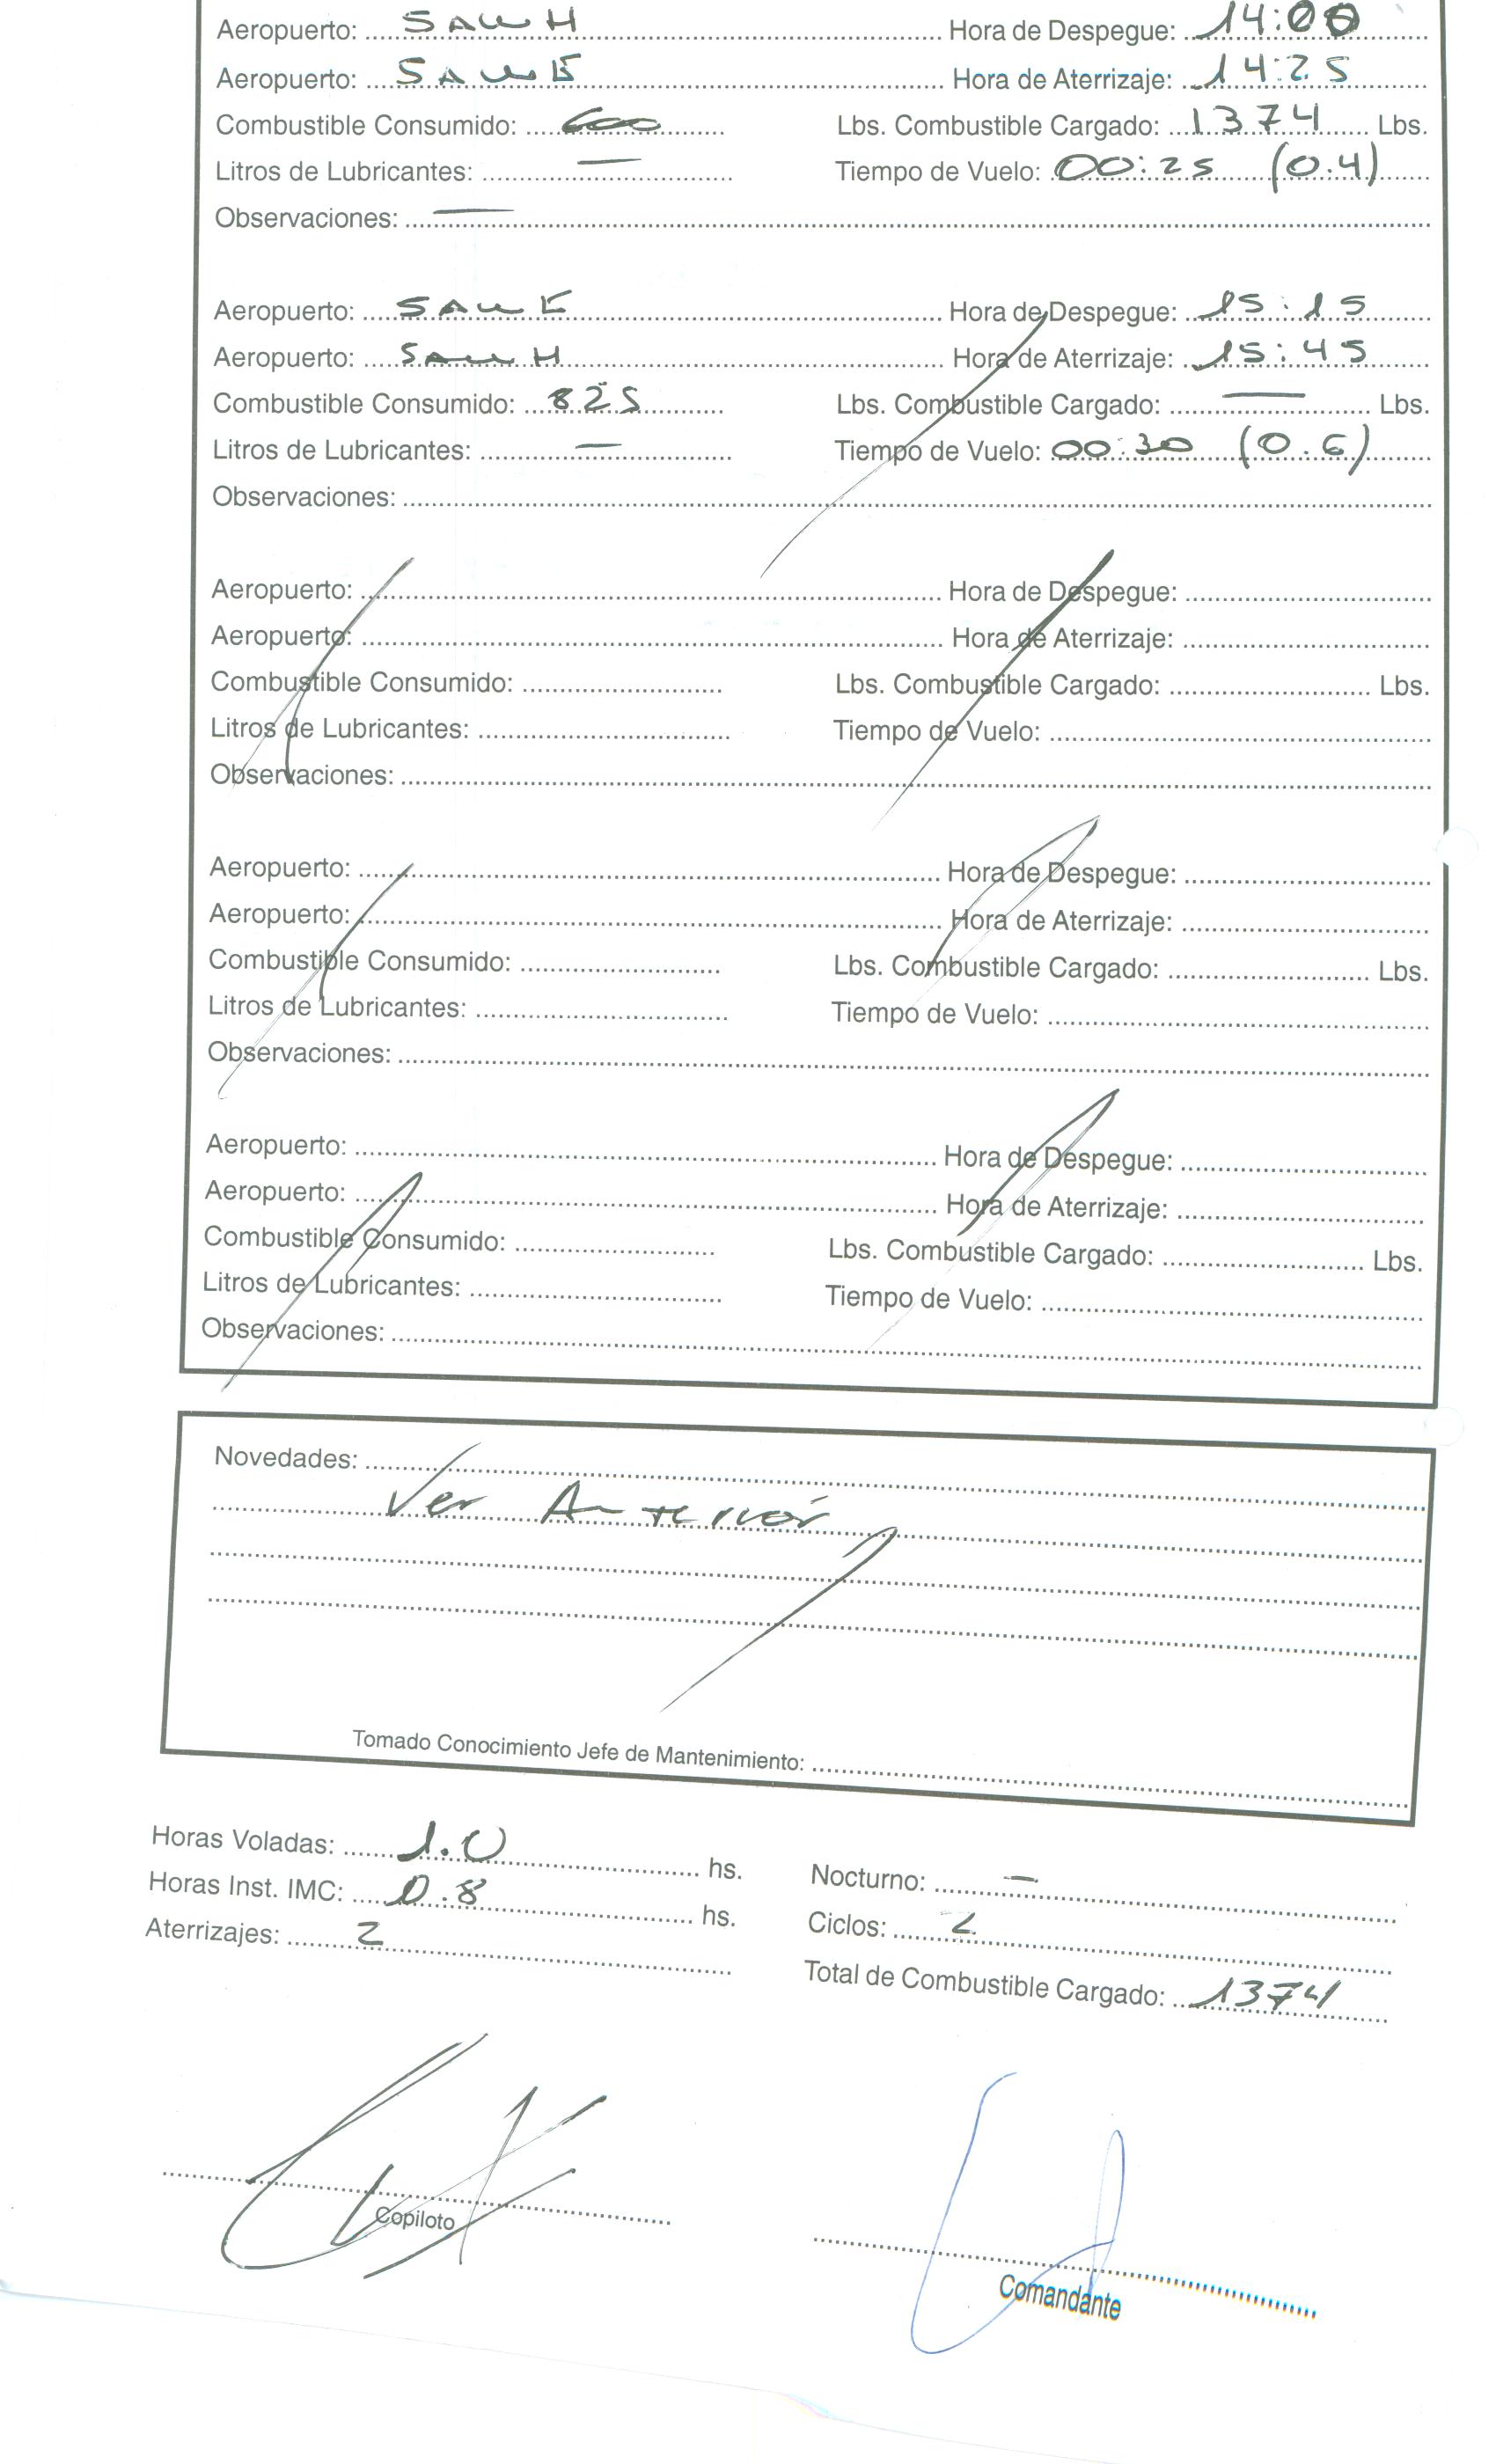 Aeropuerto: SAWH Hora de Despegue: 14:00
Aeropuerto: SAWE Hora de Aterrizaje: 14:25
Combustible Consumido: 600 Lbs. Combustible Cargado: 1374 Lbs.
Litros de Lubricantes: — Tiempo de Vuelo: 00:25 (0.4)
Observaciones: —
Aeropuerto: SAWE Hora de Despegue: 15:15
Aeropuerto: SAWH Hora de Aterrizaje: 15:45
Combustible Consumido: 825 Lbs. Combustible Cargado: — Lbs.
Litros de Lubricantes: — Tiempo de Vuelo: 00:30 (0.6)
Observaciones:
Aeropuerto: Hora de Despegue:
Aeropuerto: Hora de Aterrizaje:
Combustible Consumido: Lbs. Combustible Cargado: Lbs.
Litros de Lubricantes: Tiempo de Vuelo:
Observaciones:
Aeropuerto: Hora de Despegue:
Aeropuerto: Hora de Aterrizaje:
Combustible Consumido: Lbs. Combustible Cargado: Lbs.
Litros de Lubricantes: Tiempo de Vuelo:
Observaciones:
Aeropuerto: Hora de Despegue:
Aeropuerto: Hora de Aterrizaje:
Combustible Consumido: Lbs. Combustible Cargado: Lbs.
Litros de Lubricantes: Tiempo de Vuelo:
Observaciones:
Novedades:
Ver Anterior
Tomado Conocimiento Jefe de Mantenimiento:
Horas Voladas: 1.0 hs. Nocturno: —
Horas Inst. IMC: 0.8 hs. Ciclos: 2
Aterrizajes: 2 Total de Combustible Cargado: 1374
Copiloto
Comandante